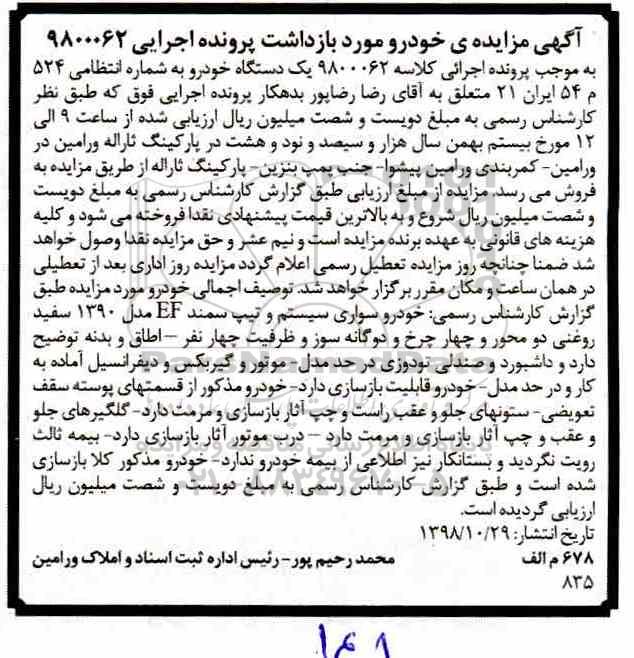 آگهی مزایده ی خودرو مورد بازداشت پرونده اجرایی ۹۸۰۰۰۶۲
به موجب پرونده اجرائی کلاسه ۹۸۰۰۰۶۲ یک دستگاه خودرو به شماره انتظامی ۵۲۴
م ۵۴ ایران ۲۱ متعلق به آقای رضا رضاپور بدهکار پرونده اجرایی فوق که طبق نظر
کارشناس رسمی به مبلغ دویست و شصت میلیون ریال ارزیابی شده از ساعت ۹ الی
۱۲ مورخ بیستم بهمن سال هزار و سیصد و نود و هشت در پارکینگ ثاراله ورامین در
ورامین- کمربندی ورامین پیشوا- جنب پمپ بنزین- پارکینگ ثاراله از طریق مزایده به
فروش می رسد. مزایده از مبلغ ارزیابی طبق گزارش کارشناس رسمی به مبلغ دویست
و شصت میلیون ریال شروع و به بالاترین قیمت پیشنهادی نقدا فروخته می شود و کلیه
هزینه های قانونی به عهده برنده مزایده است و نیم عشر و حق مزایده نقدا وصول خواهد
شد ضمنا چنانچه روز مزایده تعطیل رسمی اعلام گردد مزایده روز اداری بعد از تعطیلی
در همان ساعت و مکان مقرر برگزار خواهد شد. توصیف اجمالی خودرو مورد مزایده طبق
گزارش کارشناس رسمی: خودرو سواری سیستم و تیپ سمند EF مدل ۱۳۹۰ سفید
روغنی دو محور و چهار چرخ و دوگانه سوز و ظرفیت چهار نفر –اطاق و بدنه توضیح
دارد و داشبورد و صندلی تودوزی در حد مدل- موتور و گیربکس و دیفرانسیل آماده به
کار و در حد مدل- خودرو قابلیت بازسازی دارد- خودرو مذکور از قسمتهای پوسته سقف
تعویضی- ستونهای جلو و عقب راست و چپ آثار بازسازی و مرمت دارد- گلگیرهای جلو
و عقب و چپ آثار بازسازی و مرمت دارد – درب موتور آثار بازسازی دارد- بیمه ثالث
رویت نگردید و بستانکار نیز اطلاعی از بیمه خودرو ندارد- خودرو مذکور کلا بازسازی
شده است و طبق گزارش کارشناس رسمی به مبلغ دویست و شصت میلیون ریال
ارزیابی گردیده است.
تاریخ انتشار: ۱۳۹۸/۱۰/۲۹
۶۷۸ م الف محمد رحیم پور- رئیس اداره ثبت اسناد و املاک ورامین
۸۳۵